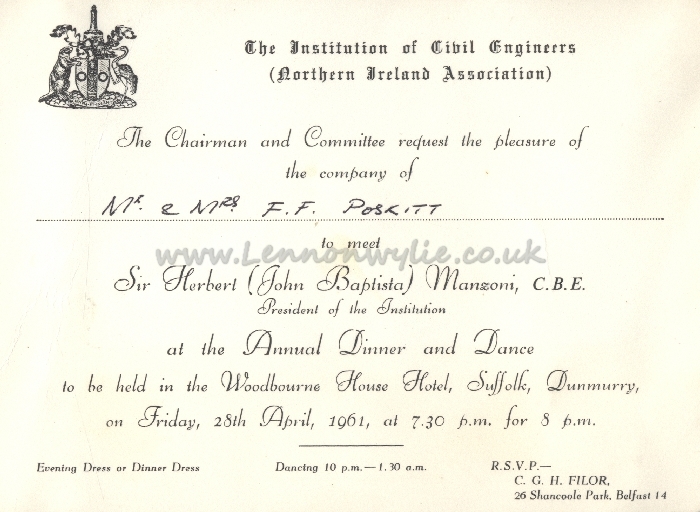 The Institution of Civil Engineers
(Northern Ireland Association)
The Chairman and Committee request the pleasure of
the company of
Mr. & Mrs. F.F. Poskitt
www.Lennonwylie.co.uk
to meet
Sir Herbert (John Baptista) Manzoni, C.B.E.
President of the Institution
at the Annual Dinner and Dance
to be held in the Woodbourne House Hotel, Suffolk, Dunmurry,
on Friday, 28th April, 1961, at 7.30 p.m. for 8 p.m.
Evening Dress or Dinner Dress
Dancing 10 p.m.—1.30 a.m.
R.S.V.P.—
C. G. H. FILOR,
26 Shancoole Park, Belfast 14